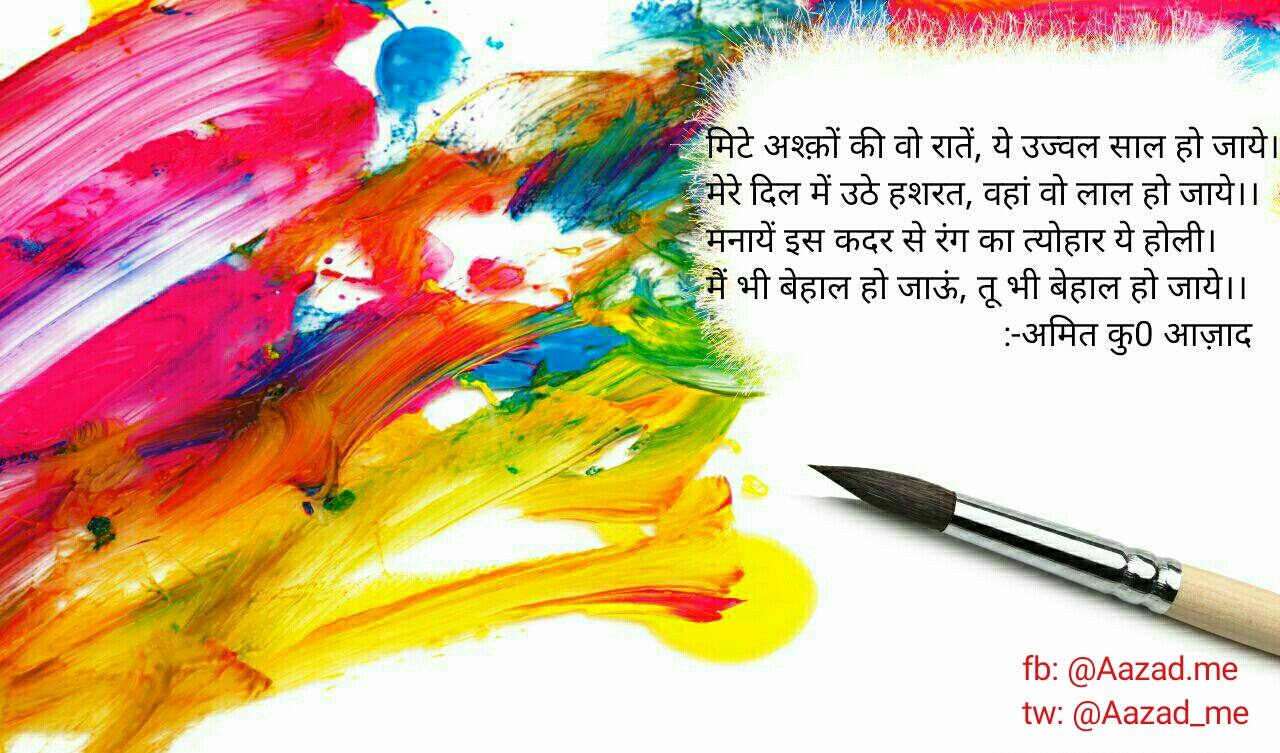 मिटे अश्क़ों की वो रातें, ये उज्वल साल हो जाये।
मेरे दिल में उठे हशरत, वहां वो लाल हो जाये।।
मनायें इस कदर से रंग का त्योहार ये होली।
मैं भी बेहाल हो जाऊं, तू भी बेहाल हो जाये।।
:-अमित कु0 आज़ाद
fb: @Aazad.me
tw: @Aazad_me